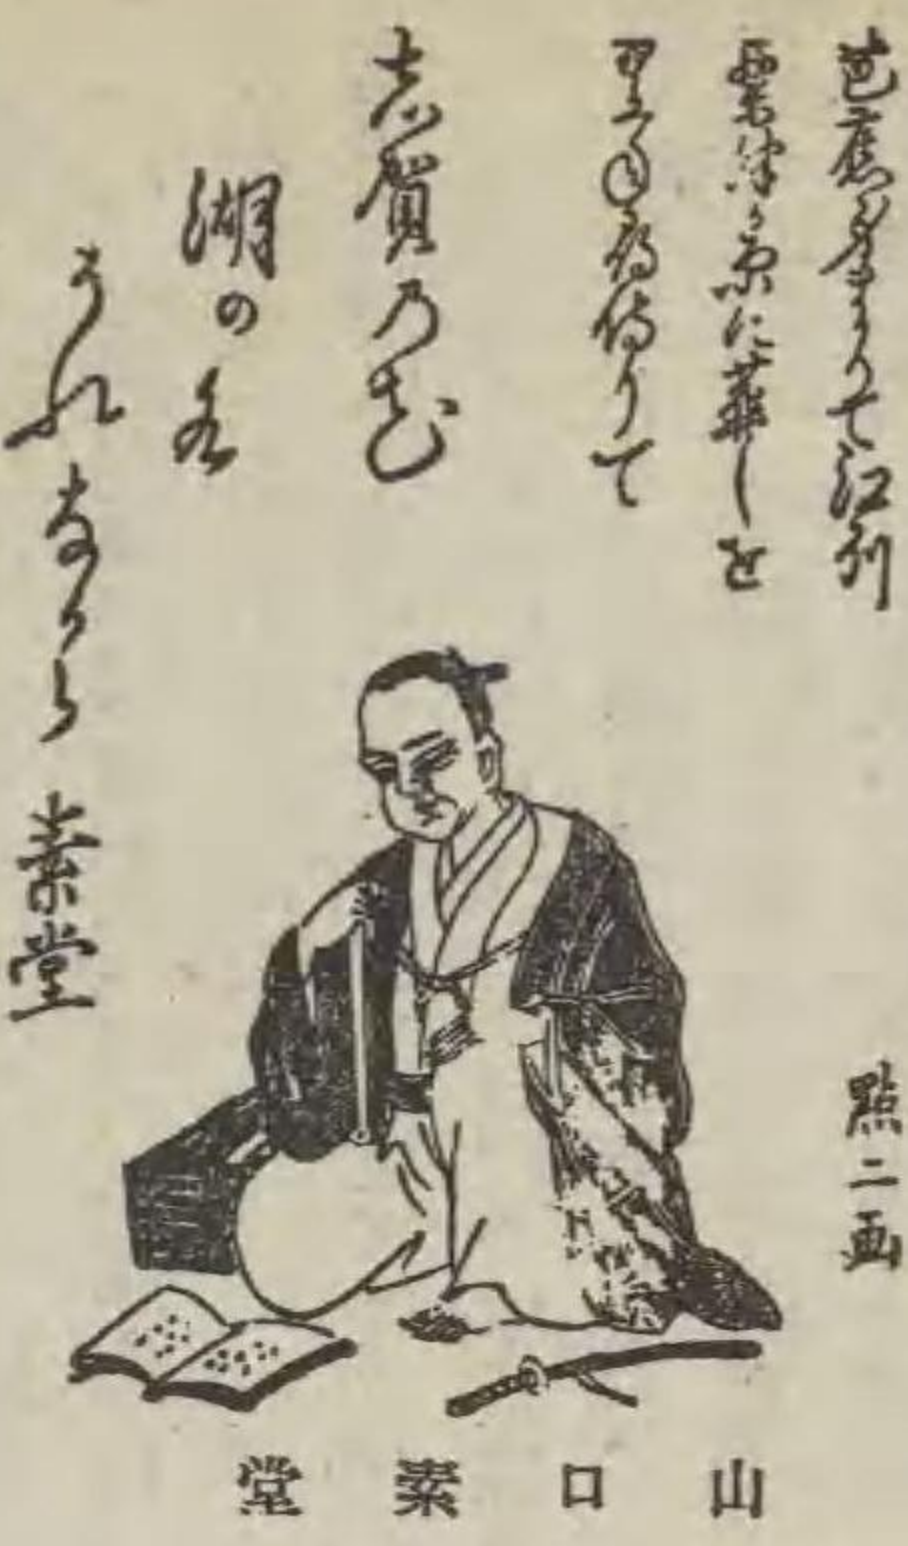 芭蕉身まかりて江州
粟津か原に葬しを
翌年
侍りて
志賀の花
湖の水
うれなから
素堂
點二画
山口素堂